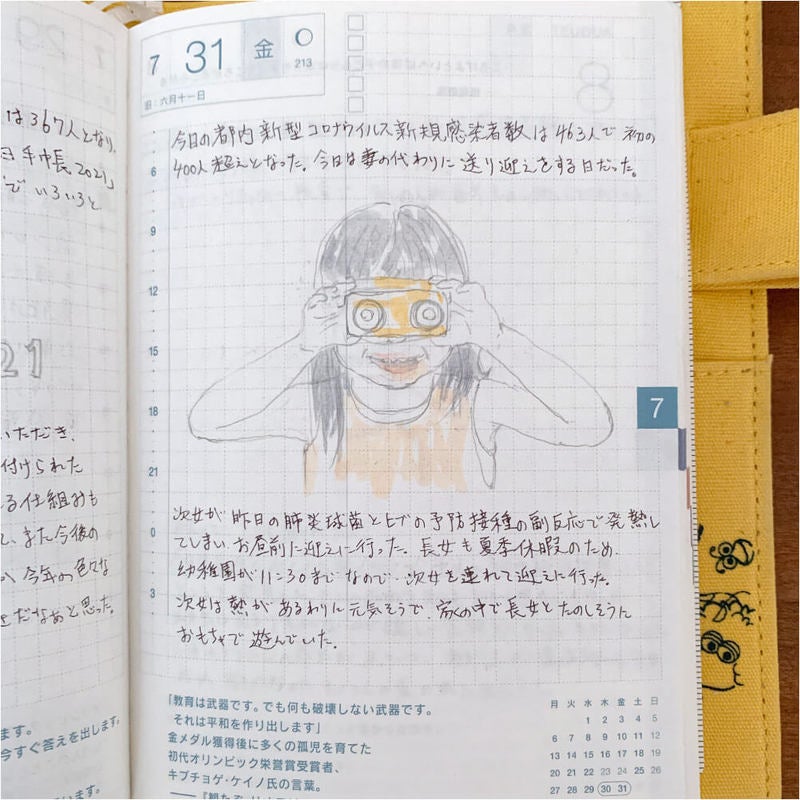 は367人となり、
日手帳2021」
でいろいろと
21
いただき、
付けられた
る仕組みも
、また今後の
今年の色々な
だなぁと思った。
ます。
今すぐ答えを出します。
7 31 金
213
旧:六月十一日
今日の都内新型コロナウイルス新規感染者数は463人で初の
400人超えとなった。今日は妻の代わりに送り迎えをする日だった。
6
9
12
15
18
21
0
3
7
次女が昨日の肺炎球菌とヒブの予防接種の副反応で発熱し
てしまい、お昼前に迎えに行った。長女も夏季休暇のため、
幼稚園が11:30までなので、次女を連れて迎えに行った。
次女は熱があるわりに元気そうで、家の中で長女とたのしそうに
おもちゃで遊んでいた。
「教育は武器です。でも何も破壊しない武器です。
それは平和を作り出します」
金メダル獲得後に多くの孤児を育てた
初代オリンピック栄誉賞受賞者、
キプチョゲ・ケイノ氏の言葉。
月 火 水 木 金 土 日
1 2 3 4 5
6 7 8 9 10 11 12
13 14 15 16 17 18 19
20 21 22 23 24 25 26
27 28 29 30 31